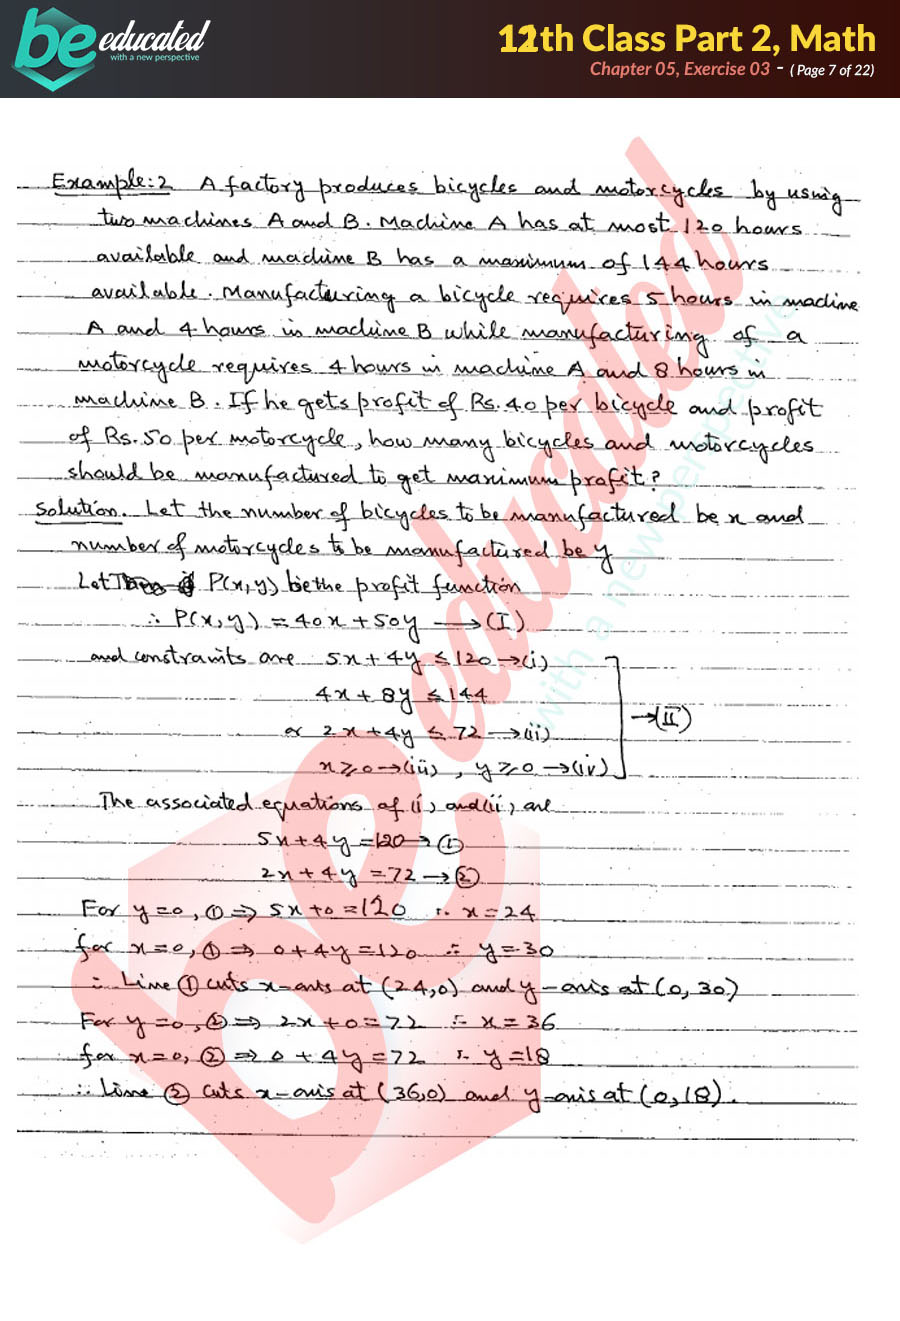 be educated
with a new perspective
12th Class Part 2, Math
Chapter 05, Exercise 03 - ( Page 7 of 22)
Example:2 A factory produces bicycles and motorcycles by using
two machines A and B. Machine A has at most 120 hours
available and machine B has a maximum of 144 hours
available. Manufacturing a bicycle requires 5 hours in machine
A and 4 hours in machine B while manufacturing of a
motorcycle requires 4 hours in machine A and 8 hours in
machine B. If he gets profit of Rs.40 per bicycle and profit
of Rs.50 per motorcycle, how many bicycles and motorcycles
should be manufactured to get maximum profit?
Solution. Let the number of bicycles to be manufactured be x and
number of motorcycles to be manufactured be y
Let P(x,y) be the profit function
∴ P(x,y) = 40x + 50y ⟶ (I)
and constraints are 5x + 4y ≤ 120 → (i)
4x + 8y ≤ 144
or 2x + 4y ≤ 72 → (ii)
→ (II)
x ≥ 0 → (iii) , y ≥ 0 → (iv)
The associated equations of (i) and (ii) are
5x + 4y = 120 → ①
2x + 4y = 72 → ②
For y=0, ① ⇒ 5x + 0 = 120 ∴ x = 24
for x=0, ① ⇒ 0 + 4y = 120 ∴ y = 30
∴ Line ① cuts x-axis at (24,0) and y-axis at (0,30)
For y=0, ② ⇒ 2x + 0 = 72 ∴ x = 36
for x=0, ② ⇒ 0 + 4y = 72 ∴ y = 18
∴ Line ② cuts x-axis at (36,0) and y-axis at (0,18).
be educated
with a new perspective